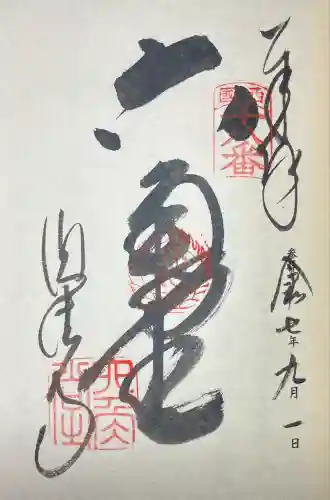 奉拝
西國
十八番
令和七年九月一日
六角堂
頂法寺